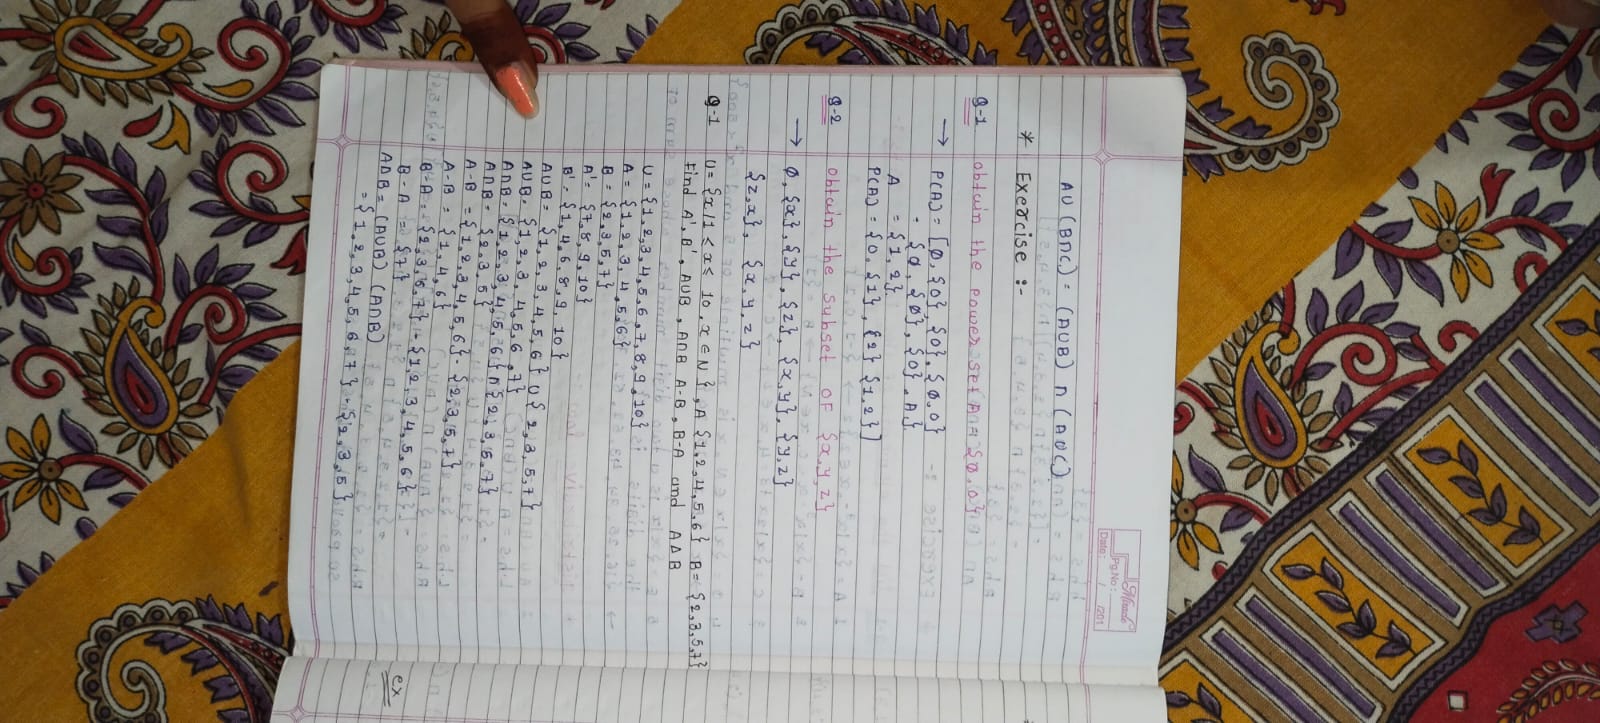 Miracle
Pg.No:
Date: / /201
AU(BnC) = (AUB) n (AUC)
* Exercise :-
Q-1 obtain the power set A = {ø,0}
→ P(A) = [ø,{0},{0},{ø,0}
= {ø {ø},{0},A}.
A = {1,2}.
P(A) = {0,{1},{2}{12}]
Q-2 obtain the subset OF {x,y,z}
→ ø,{x},{y},{z},{x,y},{y,z}
{z,x}, {x,y,z}
Q-1 U= {x/1 < x ≤ 10, x ∈ N}, A {1,2,4,5,6} B={2,3,5,7}
Find A', B', AUB, AnB A-B, B-A and A∆B
U= {1,2,3,4,5,6,7,8,9,10}
A = {1,2,3,4,5,6}
B = {2,3,5,7}
A' = {7,8,9,10}
B' = {1,4,6,8,9,10}
AUB = {1,2,3,4,5,6} U {2,3,5,7}
AUB = {1,2,3,4,5,6,7}
AnB = {1,2,3,4,5,6} n {2,3,5,7}
AnB = {2,3,5}
A-B = {1,2,3,4,5,6} - {2,3,5,7}
A-B = {1,4,6}
B-A = {2,3,6,7} - {1,2,3,4,5,6}
B-A = {7}
A∆B = (AUB) (AnB)
= {1,2,3,4,5,6,7} - {2,3,5}
ex